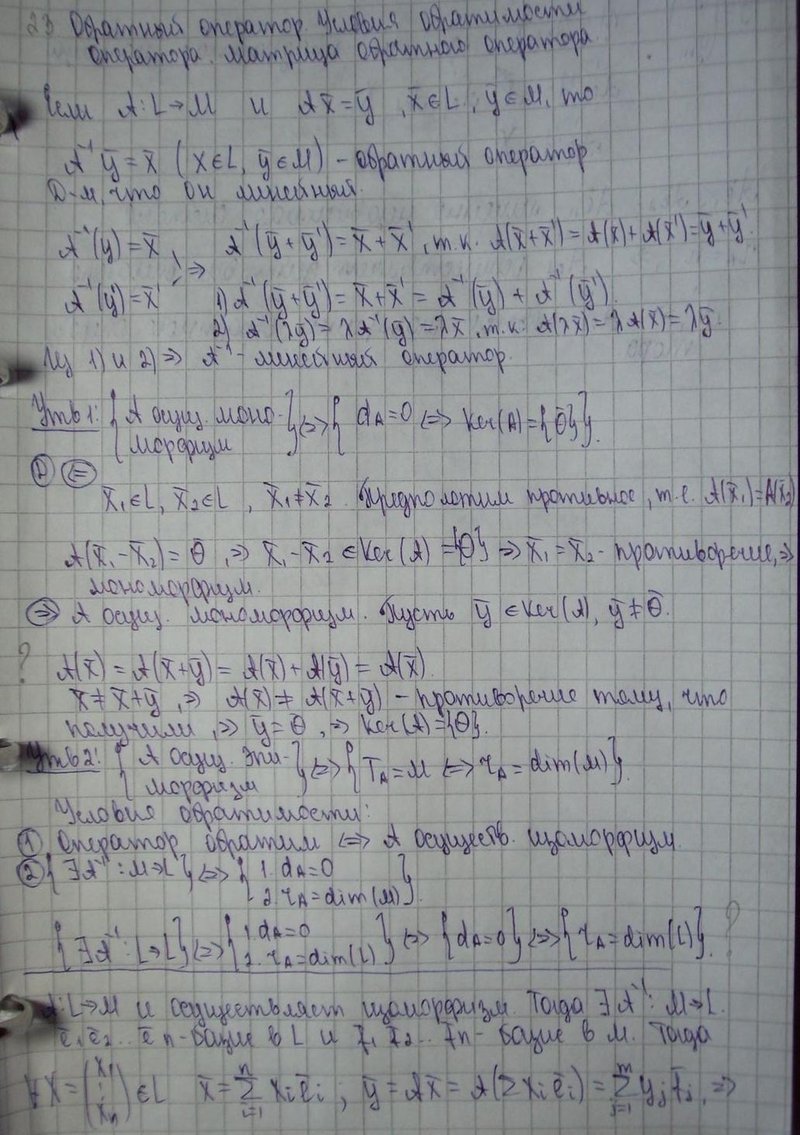 23 Обратный оператор. Условия обратимости
оператора. Матрица обратного оператора
Если A: L→M и Ax̄=ȳ, x̄∈L, ȳ∈M, то
A⁻¹ȳ=x̄ (x∈L, ȳ∈M) – обратный оператор
Д-м, что он линейный.
A⁻¹(y)=x̄
A⁻¹(y')=x̄' } ⇒ A⁻¹(ȳ+ȳ')=x̄+x̄', т.к. A(x̄+x̄')=A(x̄)+A(x̄')=ȳ+ȳ'
1) A⁻¹(ȳ+ȳ')=x̄+x̄'=A⁻¹(ȳ)+A⁻¹(ȳ').
2) A⁻¹(λy)=λA⁻¹(y)=λx̄, т.к. A(λx̄)=λA(x̄)=λȳ.
Из 1) и 2) ⇒ A⁻¹ – линейный оператор.
Утв 1: {A осущ. моно-
морфизм} ⇔ {d_A=0 ⇔ Ker(A)={Θ}}.
Д ⇐
x̄₁∈L, x̄₂∈L, x̄₁≠x̄₂. Предположим противное, т.е. A(x̄₁)=A(x̄₂)
A(x̄₁-x̄₂)=Θ, ⇒ x̄₁-x̄₂∈Ker(A)={Θ} ⇒ x̄₁=x̄₂ - противоречие, ⇒
мономорфизм.
⇒ A осущ. мономорфизм. Пусть ȳ∈Ker(A), ȳ≠Θ.
? A(x̄)=A(x̄+ȳ)=A(x̄)+A(ȳ)=A(x̄).
x̄≠x̄+ȳ, ⇒ A(x̄)≠A(x̄+ȳ) – противоречие тому, что
получили, ⇒ ȳ=Θ, ⇒ Ker(A)={Θ}.
Утв 2: {A осущ. эпи-
морфизм} ⇔ {T_A=M ⇔ r_A=dim(M)}.
Условия обратимости:
① Оператор обратим ⇔ A осуществ. изоморфизм.
② {∃A⁻¹: M→L} ⇔ {1. d_A=0
2. r_A=dim(M)}.
{∃A⁻¹: L→L} ⇔ {1. d_A=0
2. r_A=dim(L)} ⇔ {d_A=0} ⇔ {r_A=dim(L)}. ?
A: L→M и осуществляет изоморфизм. Тогда ∃A⁻¹: M→L.
ē₁ ē₂.. ēn - базис в L и f̄₁ f̄₂.. f̄n - базис в M. Тогда
∀X=(x₁ ⋮ xn)∈L x̄=∑ⁿᵢ₌₁ xᵢēᵢ; ȳ=Ax̄=A(∑xᵢēᵢ)=∑ᵐⱼ₌₁ yⱼf̄ⱼ, ⇒